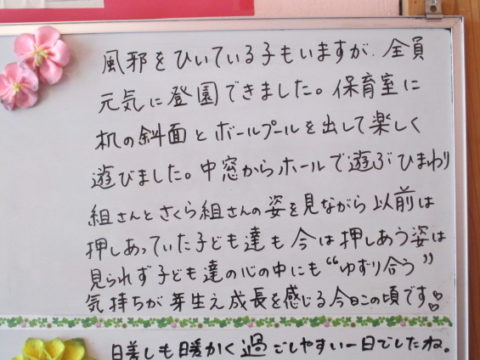 風邪をひいている子もいますが、全員
元気に登園できました。保育室に
机の斜面とボールプールを出して楽しく
遊びました。中窓からホールで遊ぶひまわり
組さんとさくら組さんの姿を見ながら以前は
押しあっていた子ども達も今は押しあう姿は
見られず子ども達の心の中にも“ゆずり合う”
気持ちが芽生え成長を感じる今日この頃です♡
日差しも暖かく過ごしやすい一日でしたね。